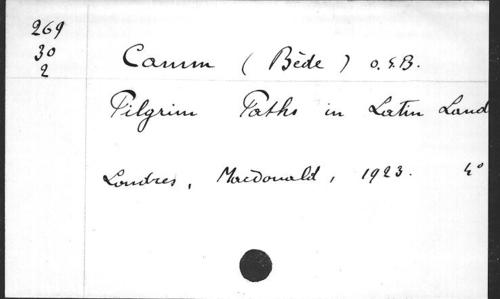 269
30
2
Camm (Bède) O.S.B.
Pilgrim Paths in Latin Land
Londres, Macdonald, 1923. 4°